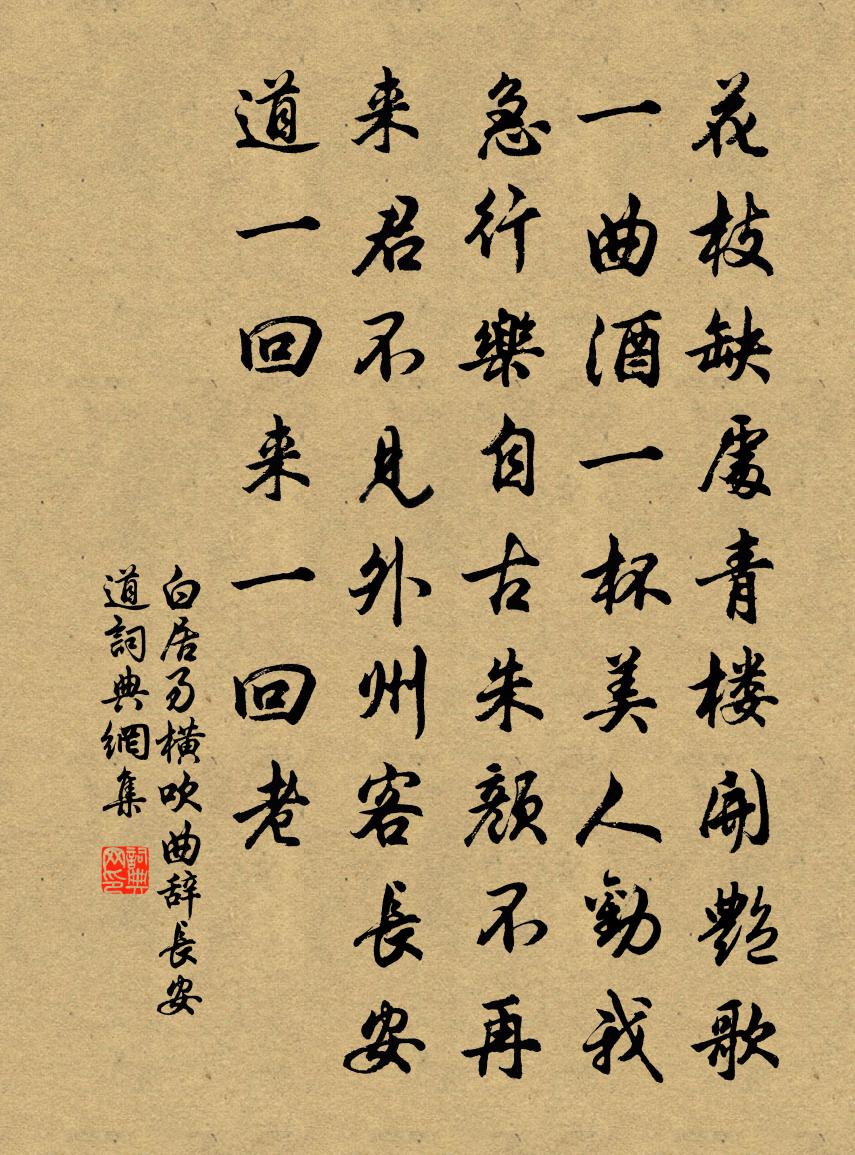 花枝缺處青楼開艶歌
一曲酒一杯美人勸我
急行樂自古朱顏不再
来君不見外州客長安
道一回来一回老
白居易橫吹曲辞長安
道詞典網集
詞典
网印